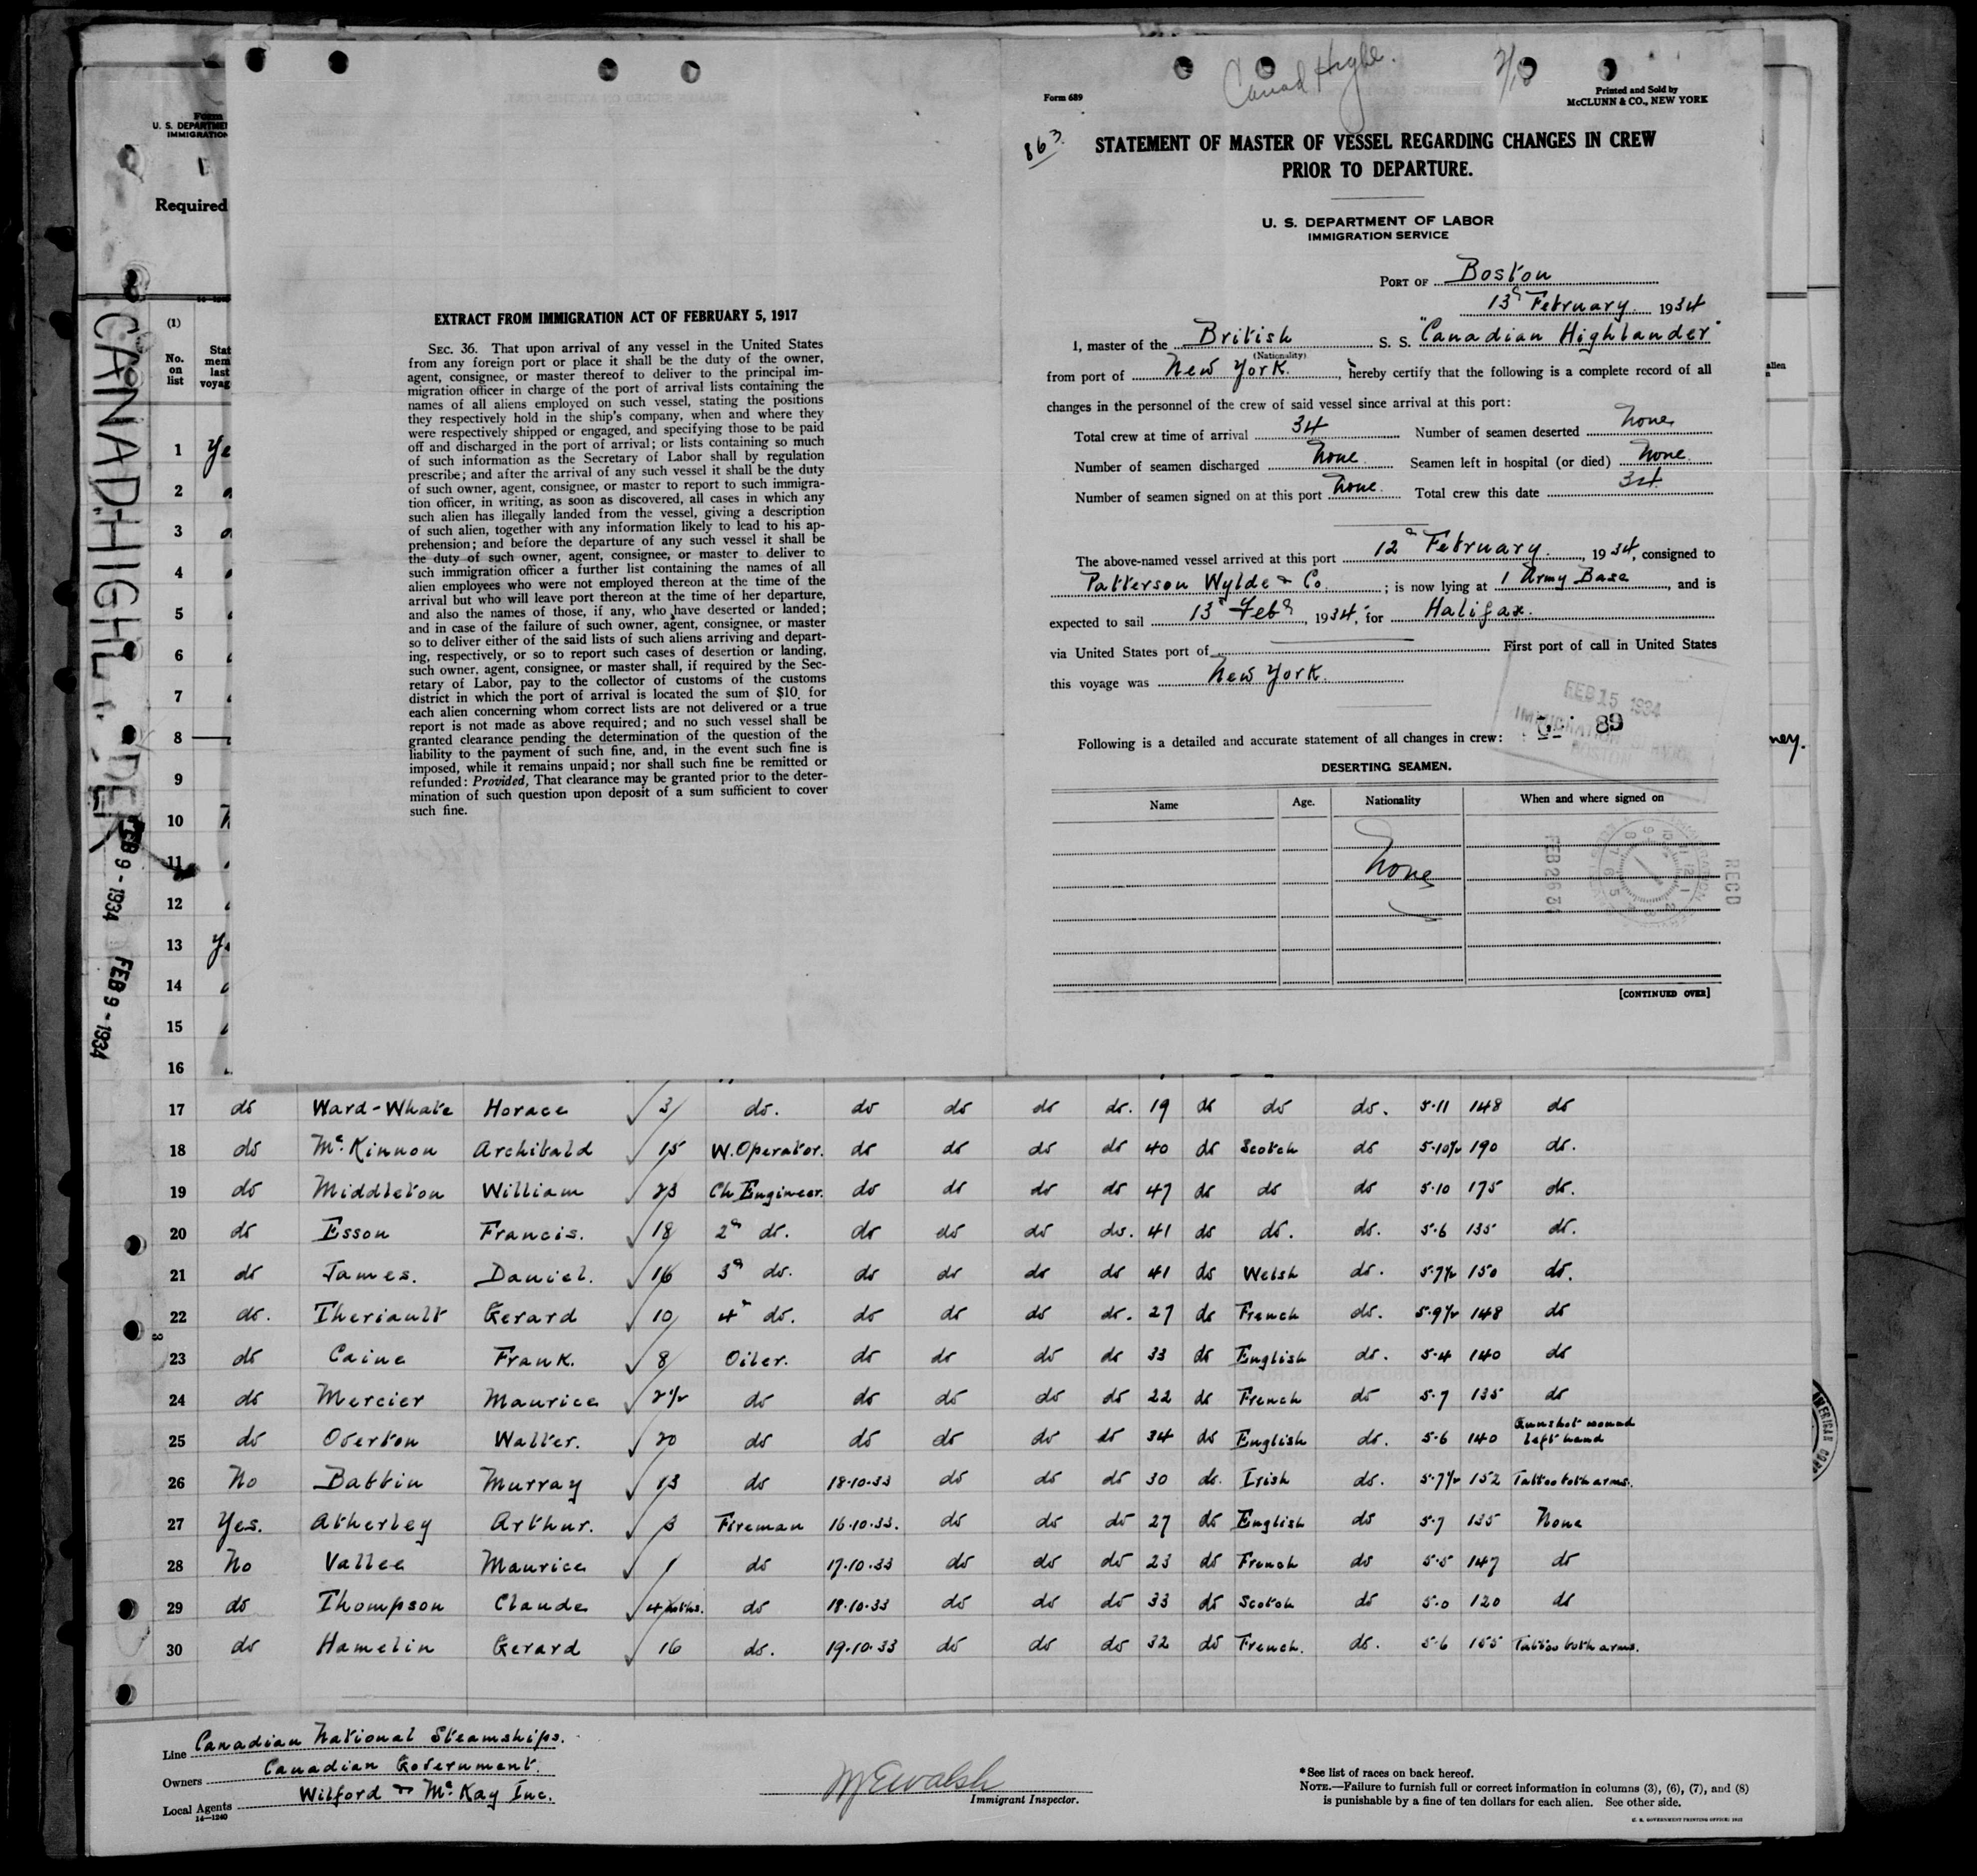 Canad Highl.
2/13
Form 689
Printed and Sold by
McCLUNN & CO., NEW YORK
863
STATEMENT OF MASTER OF VESSEL REGARDING CHANGES IN CREW
PRIOR TO DEPARTURE.
U. S. DEPARTMENT OF LABOR
IMMIGRATION SERVICE
PORT OF Boston
13th February 1934
I, master of the British S. S. "Canadian Highlander"
(Nationality)
from port of New York, hereby certify that the following is a complete record of all
changes in the personnel of the crew of said vessel since arrival at this port:
Total crew at time of arrival 34 Number of seamen deserted None
Number of seamen discharged None Seamen left in hospital (or died) None.
Number of seamen signed on at this port None. Total crew this date 34
The above-named vessel arrived at this port 12th February, 1934, consigned to
Patterson Wylde & Co.; is now lying at 1 Army Base, and is
expected to sail 13th Feb, 1934, for Halifax.
via United States port of First port of call in United States
this voyage was New York.
FEB 15 1934
89
Following is a detailed and accurate statement of all changes in crew:
DESERTING SEAMEN.
Name Age. Nationality When and where signed on
None
RECD
[CONTINUED OVER]
EXTRACT FROM IMMIGRATION ACT OF FEBRUARY 5, 1917
SEC. 36. That upon arrival of any vessel in the United States
from any foreign port or place it shall be the duty of the owner,
agent, consignee, or master thereof to deliver to the principal im-
migration officer in charge of the port of arrival lists containing the
names of all aliens employed on such vessel, stating the positions
they respectively hold in the ship's company, when and where they
were respectively shipped or engaged, and specifying those to be paid
off and discharged in the port of arrival; or lists containing so much
of such information as the Secretary of Labor shall by regulation
prescribe; and after the arrival of any such vessel it shall be the duty
of such owner, agent, consignee, or master to report to such immigra-
tion officer, in writing, as soon as discovered, all cases in which any
such alien has illegally landed from the vessel, giving a description
of such alien, together with any information likely to lead to his ap-
prehension; and before the departure of any such vessel it shall be
the duty of such owner, agent, consignee, or master to deliver to
such immigration officer a further list containing the names of all
alien employees who were not employed thereon at the time of the
arrival but who will leave port thereon at the time of her departure,
and also the names of those, if any, who have deserted or landed;
and in case of the failure of such owner, agent, consignee, or master
so to deliver either of the said lists of such aliens arriving and depart-
ing, respectively, or so to report such cases of desertion or landing,
such owner, agent, consignee, or master shall, if required by the Sec-
retary of Labor, pay to the collector of customs of the customs
district in which the port of arrival is located the sum of $10. for
each alien concerning whom correct lists are not delivered or a true
report is not made as above required; and no such vessel shall be
granted clearance pending the determination of the question of the
liability to the payment of such fine, and, in the event such fine is
imposed, while it remains unpaid; nor shall such fine be remitted or
refunded: Provided, That clearance may be granted prior to the deter-
mination of such question upon deposit of a sum sufficient to cover
such fine.
Form
U. S. DEPARTME
IMMIGRATION
Required
(1)
No. on list
Stat mem last voyag
CANAD. HIGHL DER
FEB 9 - 1934 FEB 9 - 1934
1 Ye
2
3
4
5
6
7
8
9
10
11
12
13 Ye
14
15
16
17 do Ward-Whate Horace 3 do. do do do do. 19 do do do. 5-11 148 do
18 do McKinnon Archibald 15 W. Operator. do do do do 40 do Scotch do 5-10½ 190 do.
19 do Middleton William 23 Ch Engineer. do do do do 47 do do do 5-10 175 do.
20 do Esson Francis. 18 2nd do. do do do do. 41 do do. do. 5-6 135 do.
21 do James. Daniel. 16 3rd do. do do do do 41 do Welsh do. 5-7½ 150 do.
22 do. Theriault Gerard 10 4th do. do do do do. 27 do French do. 5-9½ 148 do
23 do Caine Frank. 8 Oiler. do do do do 33 do English do. 5-4 140 do
24 do Mercier Maurice 2½ do do do do do 22 do French do 5-7 135 do
25 do Overton Walter. 20 do do do do do 34 do English do. 5-6 140 Gunshot wound left hand
26 No Babbin Murray 13 do 18-10-33 do do do 30 do. Irish do. 5-7½ 152 Tattoo both arms.
27 Yes. Atherley Arthur. 3 Fireman 16-10-33. do do do 27 do English do 5-7 135 None
28 No Vallee Maurice 1 do 17-10-33 do do do 23 do French do 5-5 147 do
29 do Thompson Claude 4 mths. do 18-10-33 do do do 33 do Scotch do 5-0 120 do
30 do Hamelin Gerard 16 do. 19-10-33 do do do 32 do French. do. 5-6 155 Tattoo both arms.
Line Canadian National Steamships.
Owners Canadian Government.
Local Agents Wilford & McKay Inc.
14—1240
Immigrant Inspector.
*See list of races on back hereof.
NOTE.—Failure to furnish full or correct information in columns (3), (6), (7), and (8)
is punishable by a fine of ten dollars for each alien. See other side.